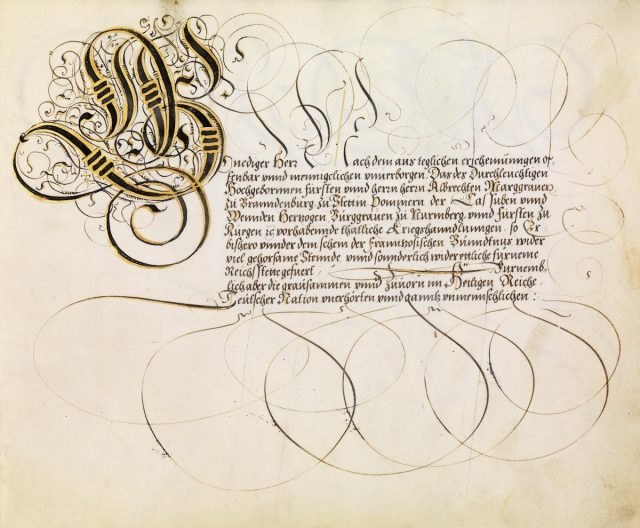 Gnediger Herr Nach dem aus teglichen erscheinungen of,
fenbar vnnd menniglichen vnuerborgen. Das des Durchleuchtigen
Hochgebornnen fursten vnnd herrn herrn Albrechten Marggrauen
zu Branndenburg zu Stetin Pommern der Cassuben vnnd
Wennden Hertzogen Burggrauen zu Nurmberg vnnd fursten zu
Ruegen ꝛc vorhabennde thatliche Kriegshandlunngen, so Er
bishero vnnder dem schein der Franntzosischen Bundtnus wider
viel gehorsame Stennde vnnd sonnderlich wider ettliche furneme
Reichsstete gefuert, Furnemb,
lich aber die grausammen vnnd zuuorn im Heiligen Reiche
Teutscher Nation vnerhorten vnnd ganntz vnmennschlichen: